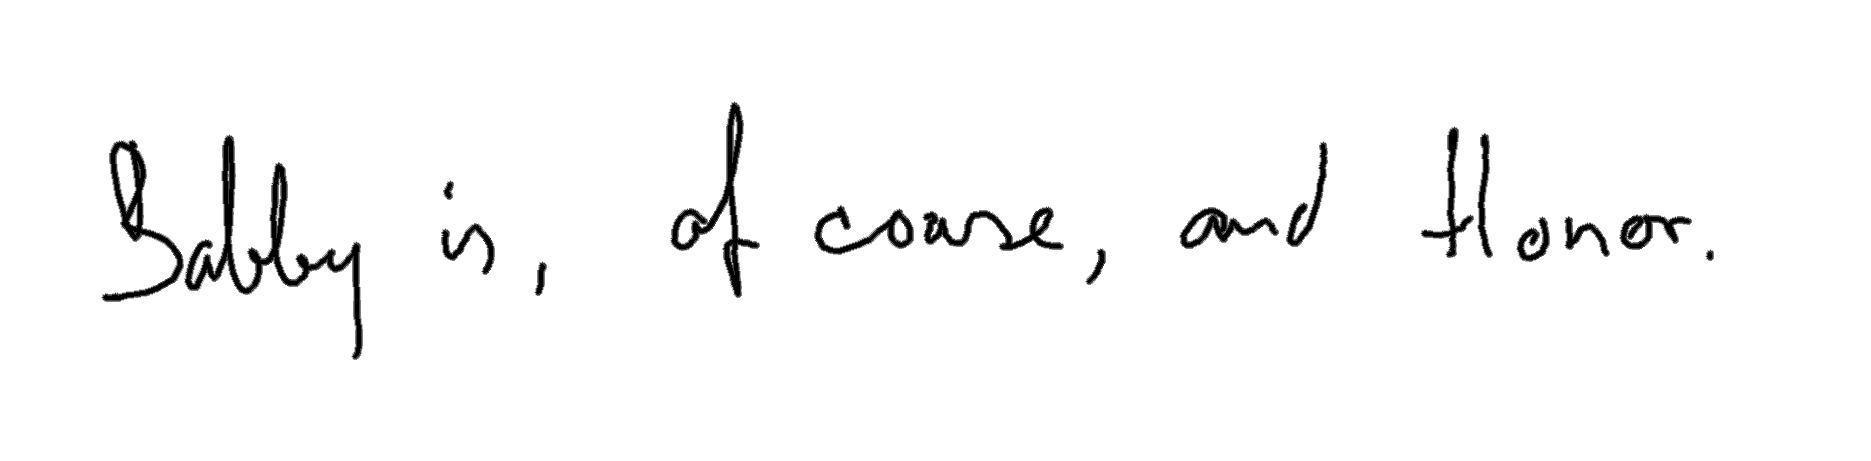 Babby is, of course, and Honor.